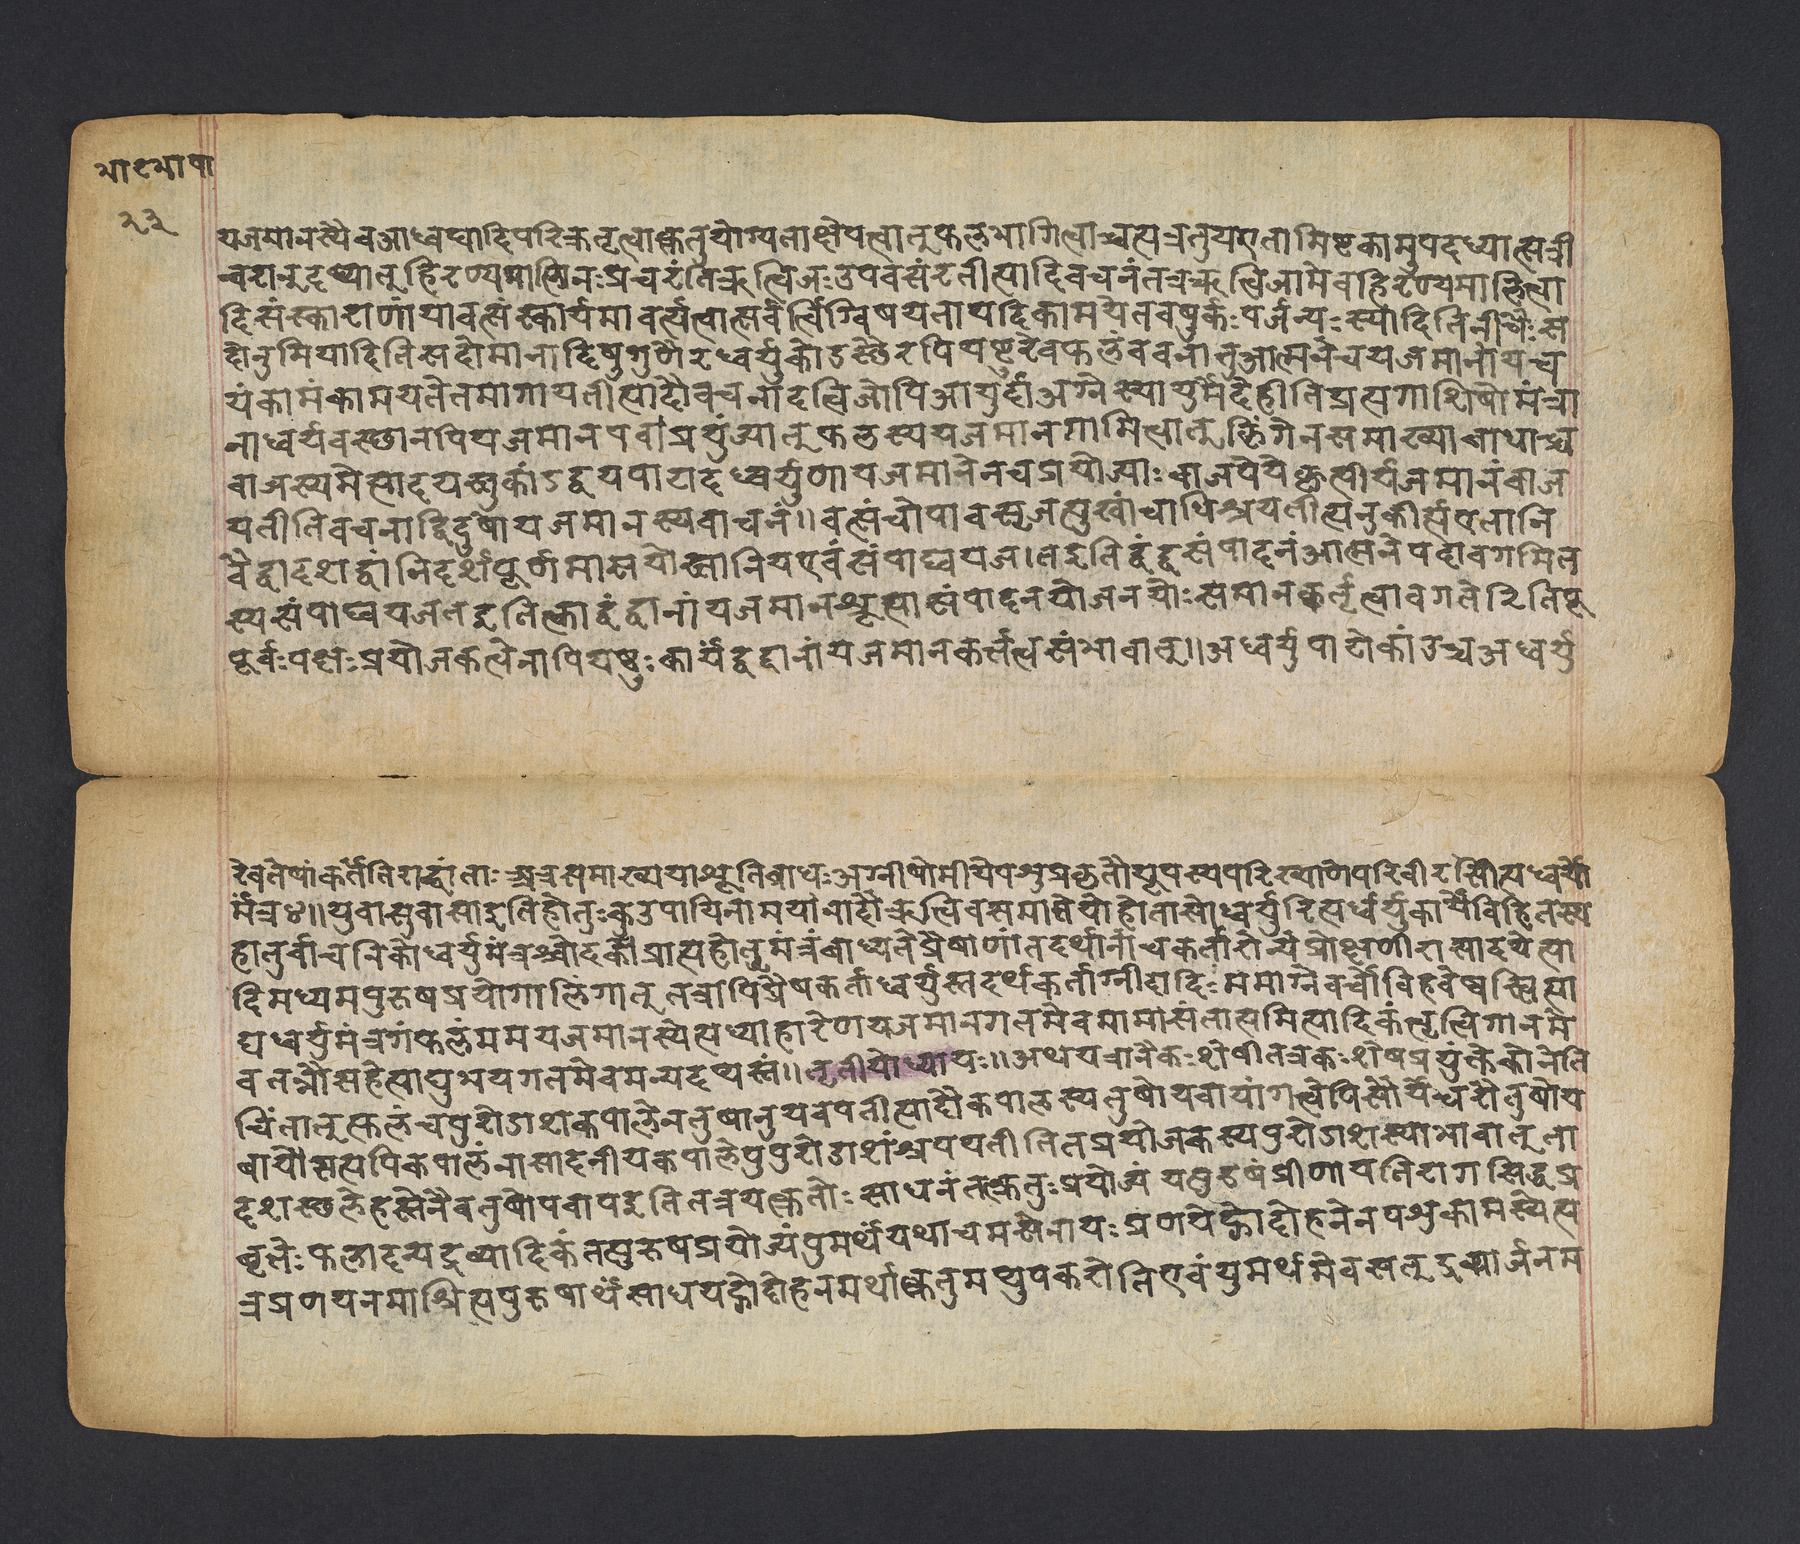 भाटभाषा
२२
यजमानस्यैवआध्वर्यवादिपरिक्रतृत्वात्क्रतुयोग्यताक्षेपत्वात्फलभागित्वाच्चत्यत्रतुयएतामिष्टकामुपदध्यात्सत्री
न्वरानुदध्यात् हिरण्यमालिनःप्रचरंतिऋत्विजःउपवसंतीत्यादिवचनंतत्रऋत्विजामेवहिरण्यमालित्वा
दिसंस्काराणांयावत्संस्कार्यमावर्त्यत्वात्सर्वर्त्विग्विषयतायदिकामयेतवर्षुकःपर्जन्यःस्यादितिनीचैःस
दोनुमियादितिसदोमानादिषुगुणैरध्वर्युको ऽन्यैरपियष्टुरेवफलंववनात्तुआत्मनेचयजमानायच
यंकामंकामयतेतमागायतीत्यादौवचनादृत्विजोपिआयुर्दाअग्नेस्यायुर्मेदेहीतिप्रत्यगाशिषोमंत्रा
नाध्वर्यवस्थानपियजमानएवप्रयुंज्यात् फलस्ययजमानगामित्वात् लिंगेनसमाख्याबाधाच्च
वाजस्यमेत्यादयस्तुकांडद्वयपाठादध्वर्युणायजमानेनचप्रयोज्याः वाजपेयेक्लृप्तीर्यजमानंवाज
यतीतिवचनाद्विदुषोयजमानस्यवाचनं॥ वत्संचोपावसृजत्युखांचाधिश्रयतीत्यनुकीर्त्यएतानि
वैद्वादशद्वंद्वानिदर्शपूर्णमासयोस्तानियएवंसंपाद्ययजतइतिद्वंद्वसंपादनंआत्मनेपदावगमित
स्यसंपाद्ययजतइतित्क्वाद्वंद्वानांयजमानश्रुत्यासंपादनयोजनयोःसमानकर्तृत्वावगतेरितिपू
पूर्वःपक्षःप्रयोजकत्वेनापियष्टुःकार्यद्वंद्वानांयजमानकर्तृत्वसंभावात्॥ अध्वर्युपाठोकांउच्चअध्वर्यु
रेवतेषांकर्तेतिराद्धांताः अत्रसमाख्ययाश्रुतिबाधःअग्नीषोमीयेपशुप्रकृतौयूपस्यपरिव्याणेपरिवीरसीत्यध्वर्यो
र्मंत्रः॥ युवासुवासाइतिहोतुःकुउपायिनामयांनार्होऋत्विक्समाख्ययोहोतासोध्वर्युरित्यध्वर्युकार्येविहितस्य
होतुर्वाचनिकोध्वर्युमंत्रश्चोदकोप्राप्यहोतृमंत्रंबाध्यतेप्रैषाणांतदर्थानांचकर्तारोन्यंप्रोक्षणीरासादयेत्या
दिमध्यमपुरुषप्रयोगालिंगात् तत्रापिप्रैषकर्ताध्वर्युस्तदर्थकर्ताग्नीदादिः ममाग्नेवर्चोविहवेष्वस्त्वित्या
द्यध्वर्युमंत्रगंफलंममयजमानस्येत्यध्याहारेणयजमानगतमेवमामासंताप्तमित्यादिकंत्वृत्विगानमे
वतन्नौसहेत्याद्युभयगतमेवमन्यदप्यस्तं॥ तृतीयोध्यायः॥ अथयत्रानेकःशेषीतत्रकःशेषप्रयुंक्तेकोनेति
चिंतात् फलंचपुरोडाशकपालेनतुषानुपवपतीत्यादौकपालस्यतुषोपवापांगत्वेपिसौर्येचरौतुषोप
वापौसत्यपिकपालंनासादनीयंकपालेपुपुरोडाशंश्रपयतीतितत्प्रयोजकस्यपुरोडाशस्याभावात् ता
दृशस्थलेहस्तेनैवतुषोपवापइतितत्रयत्क्रतोः साधनंतत्क्रतुःप्रयोज्यं यत्पुरुषंप्रीणायतिरागसिद्धप्र
वृत्तेः फलादन्यद्रव्यादिकंतत्पुरुषप्रयोज्यंपुमर्थंयथाचमसेनापःप्रणयेद्गोदोहनेनपशुकामस्येत्य
त्रप्रणयनमाश्रित्यपुरुषार्थंसाधयद्गोदोहनमर्थात्क्रतुमप्युपकरोतिएवंपुमर्थमेवसत् द्रव्यार्जनम